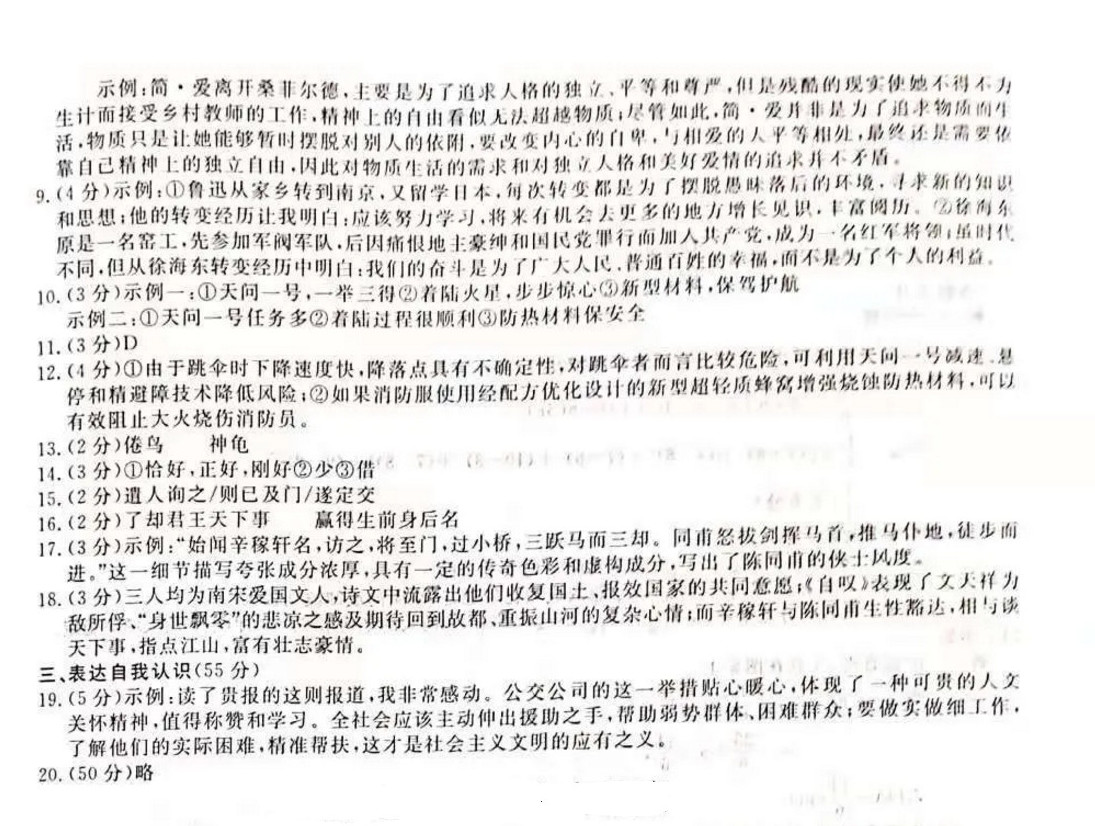 示例:简·爱离开桑菲尔德,主要是为了追求人格的独立、平等和尊严,但是残酷的现实使她不得不为
生计而接受乡村教师的工作,精神上的自由看似无法超越物质;尽管如此,简·爱并非是为了追求物质而生
活,物质只是让她能够暂时摆脱对别人的依附,要改变内心的自卑,与相爱的人平等相处,最终还是需要依
靠自己精神上的独立自由,因此对物质生活的需求和对独立人格和美好爱情的追求并不矛盾。
9.(4分)示例:①鲁迅从家乡转到南京,又留学日本,每次转变都是为了摆脱愚昧落后的环境,寻求新的知识
和思想;他的转变经历让我明白:应该努力学习,将来有机会去更多的地方增长见识,丰富阅历。②徐海东
原是一名窑工,先参加军阀军队,后因痛恨地主豪绅和国民党罪行而加入共产党,成为一名红军将领;虽时代
不同,但从徐海东转变经历中明白:我们的奋斗是为了广大人民、普通百姓的幸福,而不是为了个人的利益。
10.(3分)示例一:①天问一号,一举三得②着陆火星,步步惊心③新型材料,保驾护航
示例二:①天问一号任务多②着陆过程很顺利③防热材料保安全
11.(3分)D
12.(4分)①由于跳伞时下降速度快,降落点具有不确定性,对跳伞者而言比较危险,可利用天问一号减速、悬
停和精避障技术降低风险;②如果消防服使用经配方优化设计的新型超轻质蜂窝增强烧蚀防热材料,可以
有效阻止大火烧伤消防员。
13.(2分)倦鸟 神龟
14.(3分)①恰好,正好,刚好②少③借
15.(2分)遣人询之/则已及门/遂定交
16.(2分)了却君王天下事 赢得生前身后名
17.(3分)示例:“始闻辛稼轩名,访之,将至门,过小桥,三跃马而三却。同甫怒拔剑挥马首,推马仆地,徒步而
进。”这一细节描写夸张成分浓厚,具有一定的传奇色彩和虚构成分,写出了陈同甫的侠士风度。
18.(3分)三人均为南宋爱国文人,诗文中流露出他们收复国土、报效国家的共同意愿;《自叹》表现了文天祥为
敌所俘、“身世飘零”的悲凉之感及期待回到故都、重振山河的复杂心情;而辛稼轩与陈同甫生性豁达,相与谈
天下事,指点江山,富有壮志豪情。
三、表达自我认识(55分)
19.(5分)示例:读了贵报的这则报道,我非常感动。公交公司的这一举措贴心暖心,体现了一种可贵的人文
关怀精神,值得称赞和学习。全社会应该主动伸出援助之手,帮助弱势群体、困难群众;要做实做细工作,
了解他们的实际困难,精准帮扶,这才是社会主义文明的应有之义。
20.(50分)略